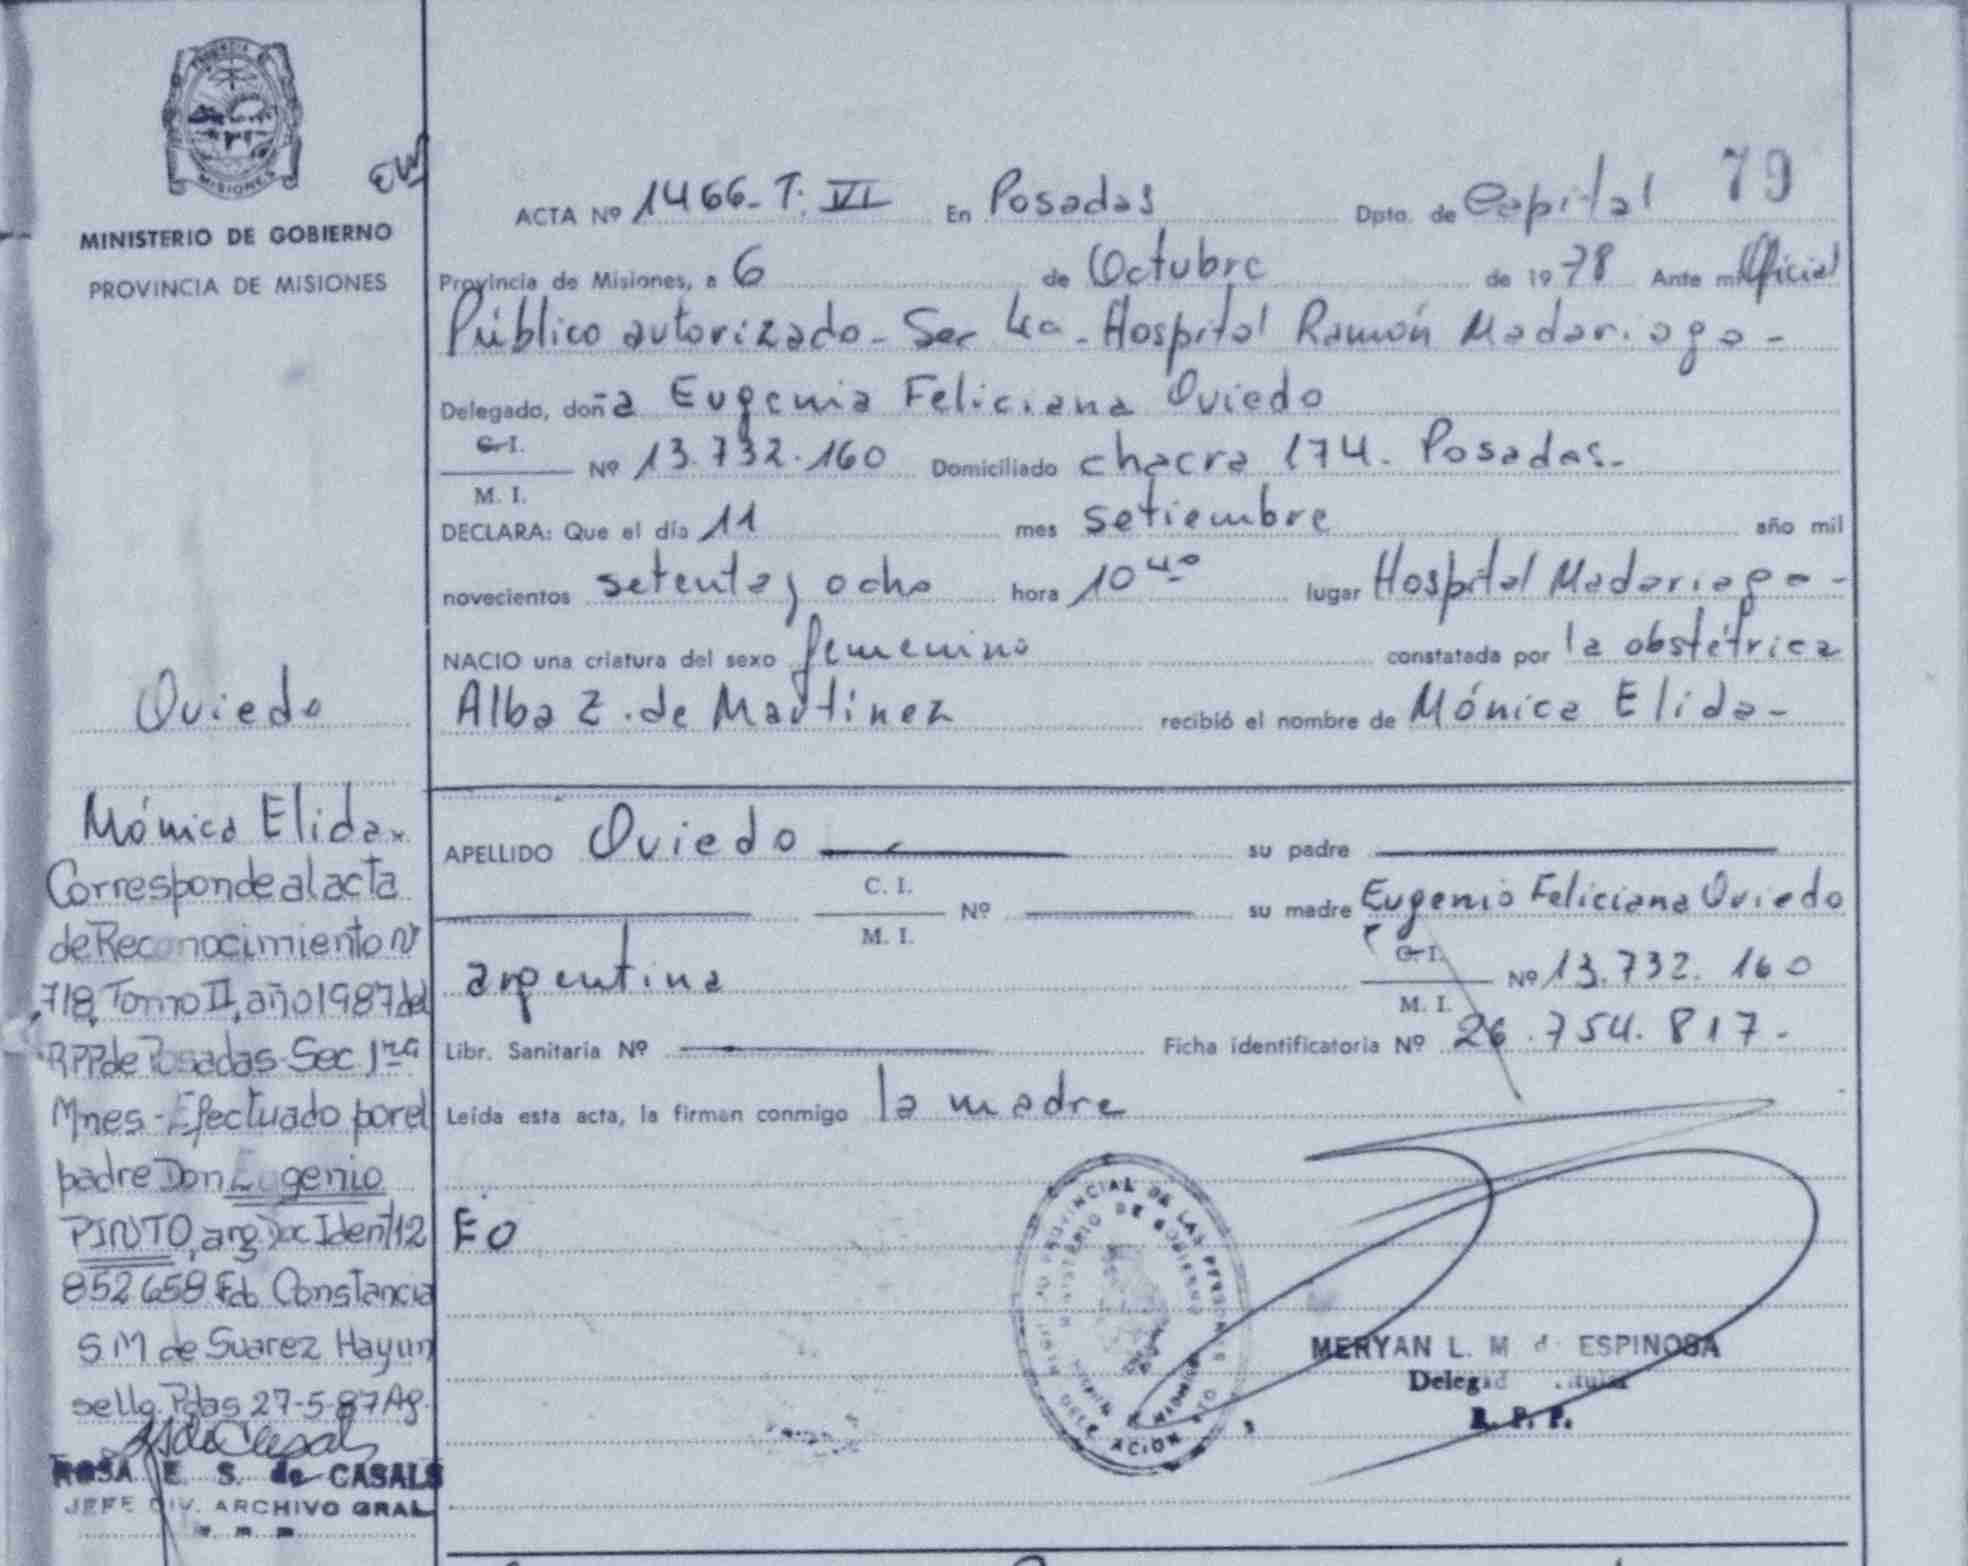 MISIONES
MINISTERIO DE GOBIERNO
PROVINCIA DE MISIONES
79
ACTA Nº 1466-T. VI En Posadas Dpto. de Capital
Provincia de Misiones, a 6 de Octubre de 1978 Ante mi Oficial
Público autorizado - Sec 4a - Hospital Ramón Madariaga -
Delegado, doña Eugenia Feliciana Oviedo
C. I.
Nº 13.732.160 Domiciliado chacra 174. Posadas-
M. I.
DECLARA: Que el día 11 mes setiembre año mil
novecientos setenta y ocho hora 10 40 lugar Hospital Madariaga -
NACIO una criatura del sexo femenino constatada por la obstétrica
Alba Z. de Martínez recibió el nombre de Mónica Elida-
APELLIDO Oviedo su padre
C. I.
Nº su madre Eugenia Feliciana Oviedo
M. I.
C. I.
argentina Nº 13.732.160
M. I.
Libr. Sanitaria Nº Ficha identificatoria Nº 26.754.817.-
Leída esta acta, la firman conmigo la madre
EO
MERYAN L. M de ESPINOSA
R. P. P.
Oviedo
Mónica Elida
Corresponde al acta
de Reconocimiento Nº
718, Tomo II, año 1987 del
RPP de Posadas Sec 1ra
Mnes - Efectuado por el
padre Don Eugenio
PINTO, arg Doc Ident 12
852 658 Fdo Constancia
S M de Suarez Hayun
sello Pdas 27-5-87 Ag.
ROSA E. S. de CASALS
JEFE DIV. ARCHIVO GRAL